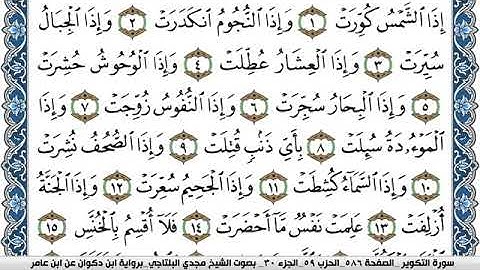 إِذَا الشَّمْسُ كُوِّرَتْ ١ وَإِذَا النُّجُومُ انْكَدَرَتْ ٢ وَإِذَا الْجِبَالُ
سُيِّرَتْ ٣ وَإِذَا الْعِشَارُ عُطِّلَتْ ٤ وَإِذَا الْوُحُوشُ حُشِرَتْ
٥ وَإِذَا الْبِحَارُ سُجِّرَتْ ٦ وَإِذَا النُّفُوسُ زُوِّجَتْ ٧ وَإِذَا
الْمَوْءُدَةُ سُئِلَتْ ٨ بِأَيِّ ذَنْبٍ قُتِلَتْ ٩ وَإِذَا الصُّحُفُ نُشِرَتْ
١٠ وَإِذَا السَّمَاءُ كُشِطَتْ ١١ وَإِذَا الْجَحِيمُ سُعِّرَتْ ١٢ وَإِذَا الْجَنَّةُ
أُزْلِفَتْ ١٣ عَلِمَتْ نَفْسٌ مَّا أَحْضَرَتْ ١٤ فَلَا أُقْسِمُ بِالْخُنَّسِ ١٥
سورة التكوير_ الصفحة ٥٨٦_ الحزب ٥٩_ الجزء ٣٠_ بصوت الشيخ مجدي البلتاجي_برواية ابن ذكوان عن ابن عامر